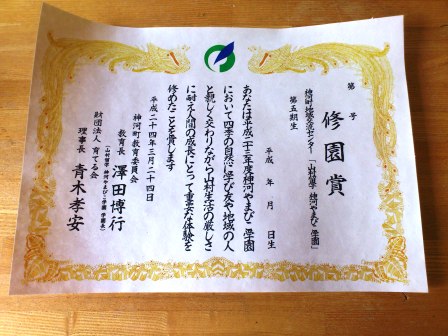 第　号
修園賞
神河町地域交流センター「山村留学 神河やまびこ学園」
第五期生
平成　年　月　日生
あなたは平成二十三年度神河やまびこ学園
において四季の自然に学び友や地域の人
と親しく交わりながら山村生活の厳しさ
に耐え人間の成長にとって重要な体験を
修めたことを賞します
平成二十四年三月二十四日
神河町教育委員会
教育長　澤田博行
(山村留学 神河やまびこ学園 学園長)
財団法人 育てる会
理事長　青木孝安